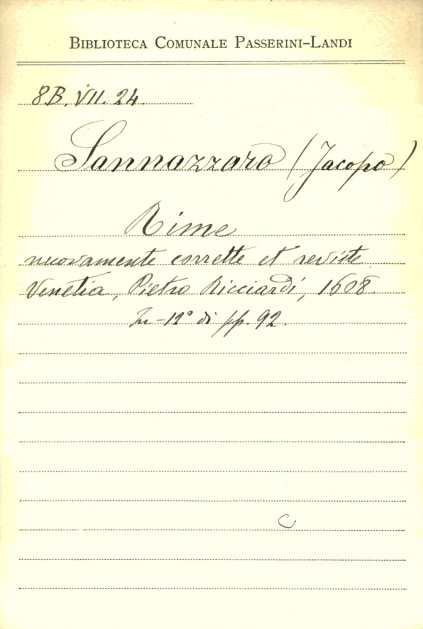 BIBLIOTECA COMUNALE PASSERINI-LANDI
8B. VII. 24.
Sannazzaro (Jacopo)
Rime
nuovamente corrette et reviste
Venetia, Pietro Ricciardi, 1608.
In-12° di pp. 92.
C